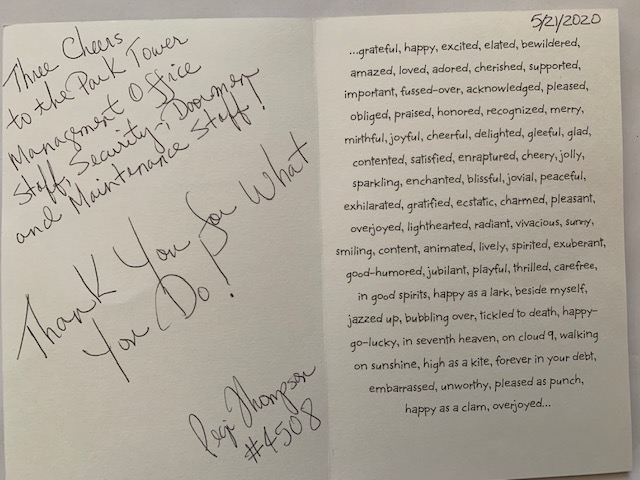 Three Cheers
to the Park Tower
Management Office
Staff, Security, Doormen
and Maintenance Staff!
Thank You for What
You Do!
Pegi Thompson
#4508
5/21/2020
...grateful, happy, excited, elated, bewildered,
amazed, loved, adored, cherished, supported,
important, fussed-over, acknowledged, pleased,
obliged, praised, honored, recognized, merry,
mirthful, joyful, cheerful, delighted, gleeful, glad,
contented, satisfied, enraptured, cheery, jolly,
sparkling, enchanted, blissful, jovial, peaceful,
exhilarated, gratified, ecstatic, charmed, pleasant,
overjoyed, lighthearted, radiant, vivacious, sunny,
smiling, content, animated, lively, spirited, exuberant,
good-humored, jubilant, playful, thrilled, carefree,
in good spirits, happy as a lark, beside myself,
jazzed up, bubbling over, tickled to death, happy-
go-lucky, in seventh heaven, on cloud 9, walking
on sunshine, high as a kite, forever in your debt,
embarrassed, unworthy, pleased as punch,
happy as a clam, overjoyed...